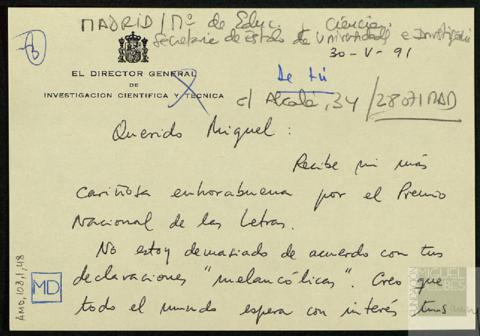 MADRID / Mº de Educ. y Ciencia.
Secretaría de Estado de Universidades e Investigación
30-V-91
EL DIRECTOR GENERAL
DE
INVESTIGACION CIENTIFICA Y TECNICA
De tú
c/ Alcalá, 34 / 28071 MAD
Querido Miguel:
Recibe mi más
cariñosa enhorabuena por el Premio
Nacional de las Letras.
No estoy demasiado de acuerdo con tus
declaraciones "melancólicas". Creo que
todo el mundo espera con interés tus
AMD,108,1,48
MD
FUNDACIÓN
MIGUEL
DELIBES